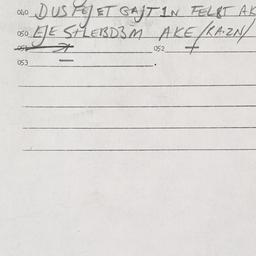 040 DUS FEJET GAJT IN FELBT AK
050 EJE STLEBD3M AKE/RAZN/
051 052
053 .